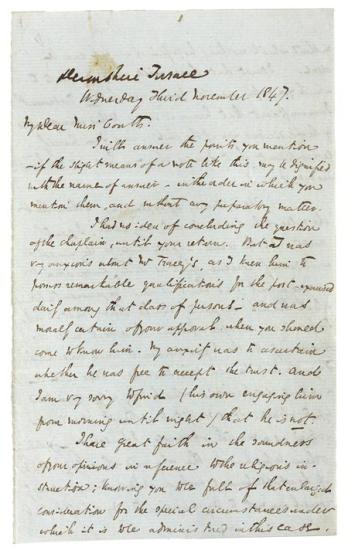 Devonshire Terrace
Wednesday Third November 1847.
My Dear Miss Coutts.
I will answer the points you mention
- if the slight means of a note like this may be dignified
with the name of answer - in the order in which you
mention them, and without any preparatory matter.
I had no idea of concluding the question
of the chaplain, until your return. But I was
very anxious about Mr Tracey's, as I knew him to
possess remarkable qualifications for the post - exercised
daily among that class of persons - and was
morally certain of your approval when you should
come to know him. My object was to ascertain
whether he was free to accept the trust. And
I am very sorry to find (his own engaging him
from morning until night) that he is not.
I have great faith in the soundness
of your opinions in reference to the religious in-
struction; knowing you to be full of that enlarged
consideration for the special circumstances under
which it is to be administered in this case.